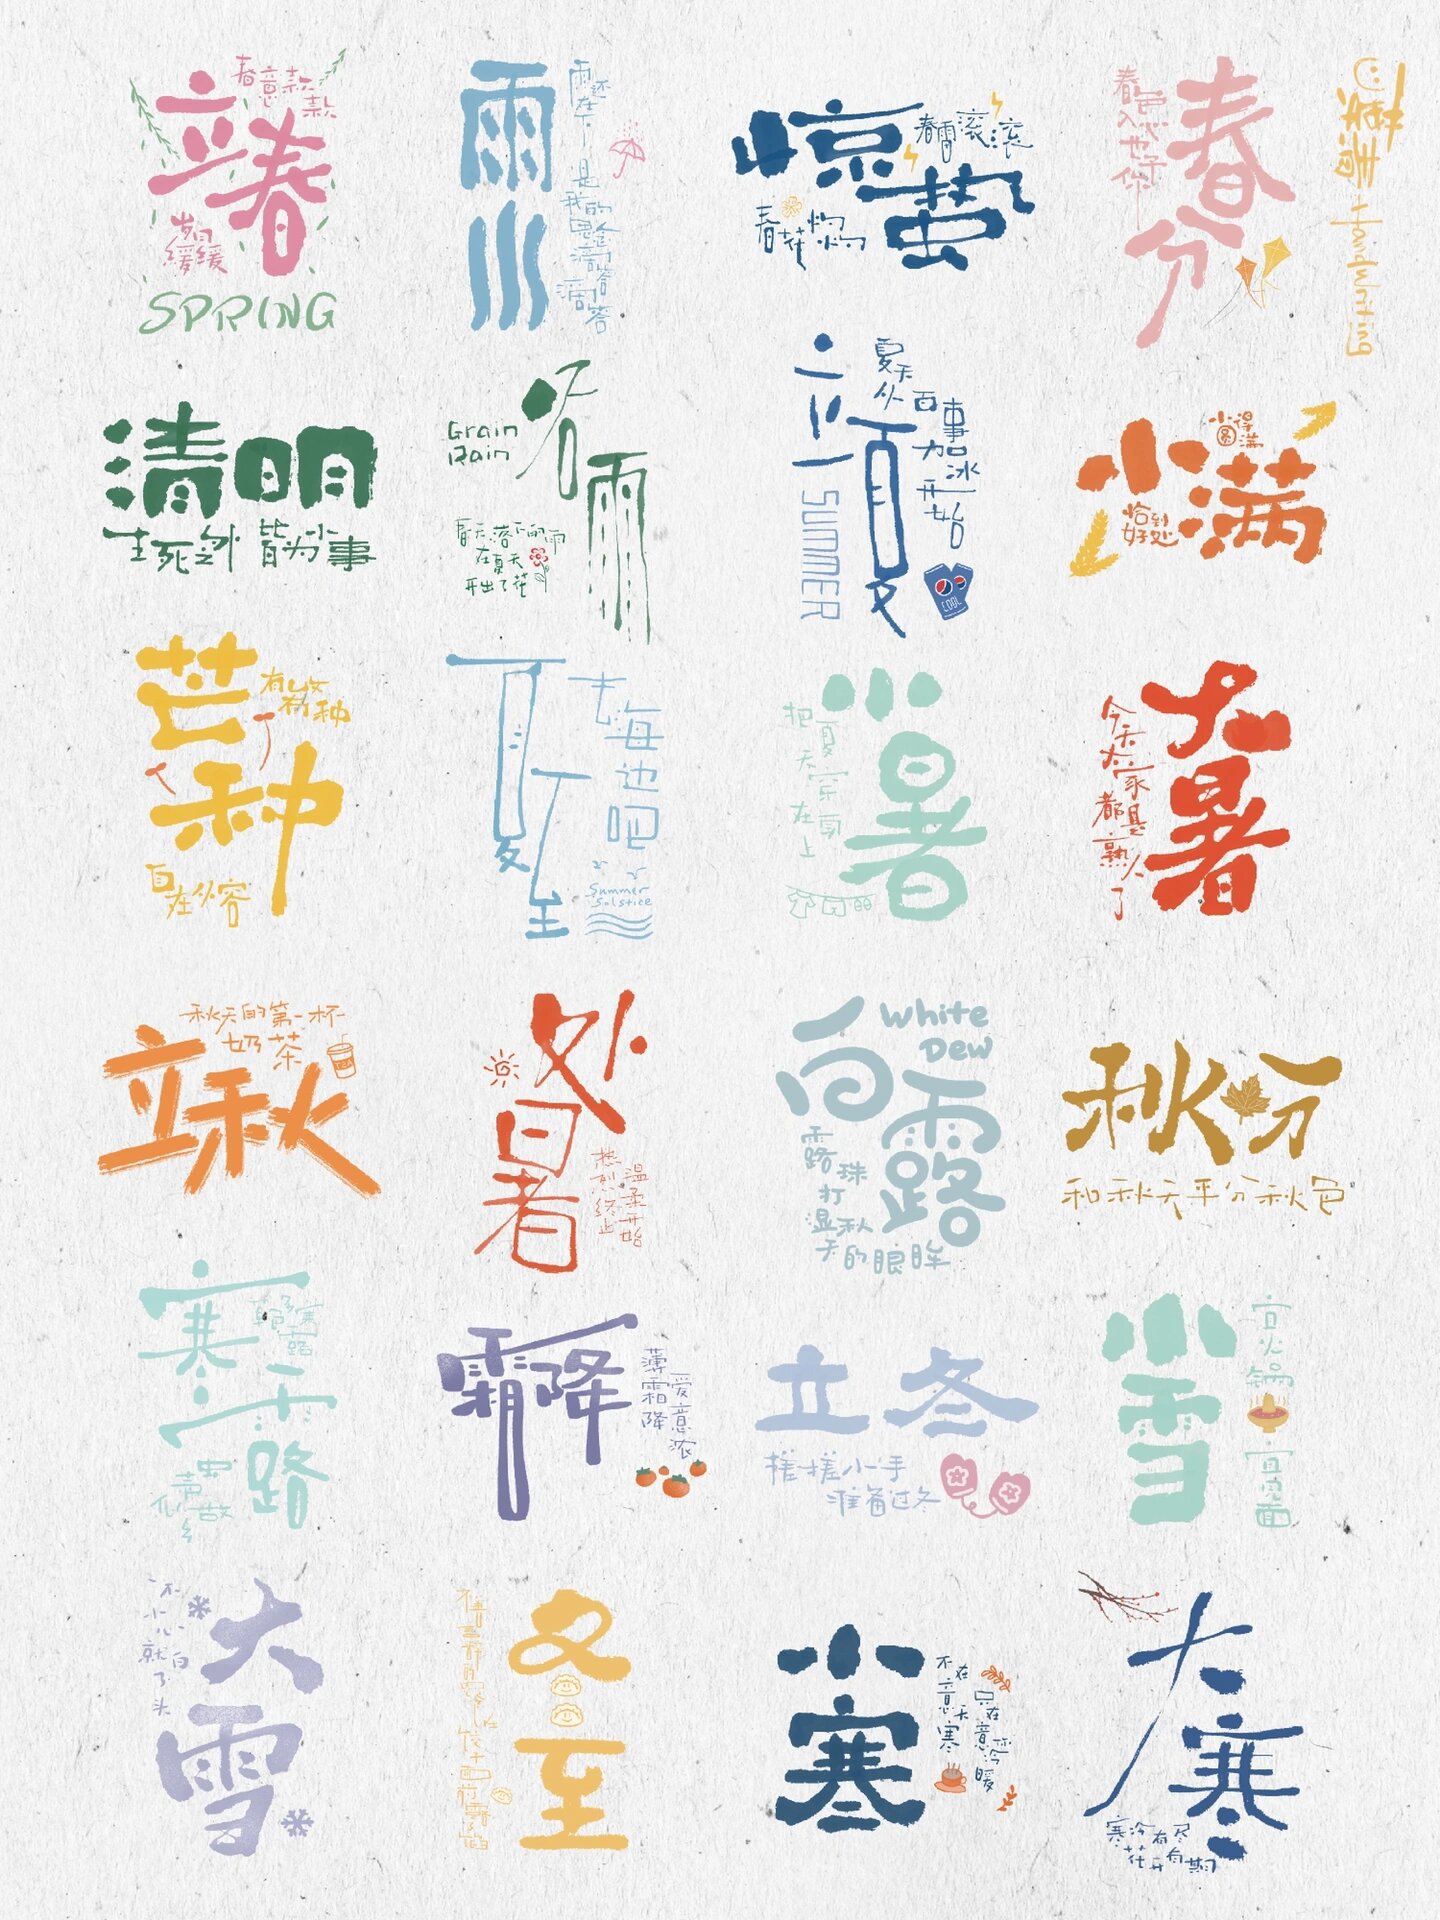 立春
春意款款
岁日缓缓
SPRING
雨水
雨还在下
是我的思念滴答滴答
惊蛰
春雷滚滚
春花灼灼
春分
春色入心也予你
handwriting
清明
生死之外 皆为小事
谷雨
Grain
Rain
春天落下的雨
在夏天
开出了花
立夏
夏天从百事加冰开始
SUMMER
COOL
小满
小得圆满
恰到好处
芒种
有收有种
自在从容
夏至
去海边吧
Summer
Solstice
小暑
把夏天穿在身上
大暑
今天大家都是熟人了
立秋
秋天的第一杯
奶茶
处暑
热烈终止
温柔开始
白露
White
Dew
露珠
打湿秋
天的眼眸
秋分
和秋天平分秋色
寒露
霜降
薄霜降
爱意浓
立冬
搓搓小手
准备过冬
小雪
宜火锅
宜见面
大雪
一不小心就白了头
冬至
小寒
不在意天寒
只在意你冷暖
大寒
寒冷有尽
花开有期